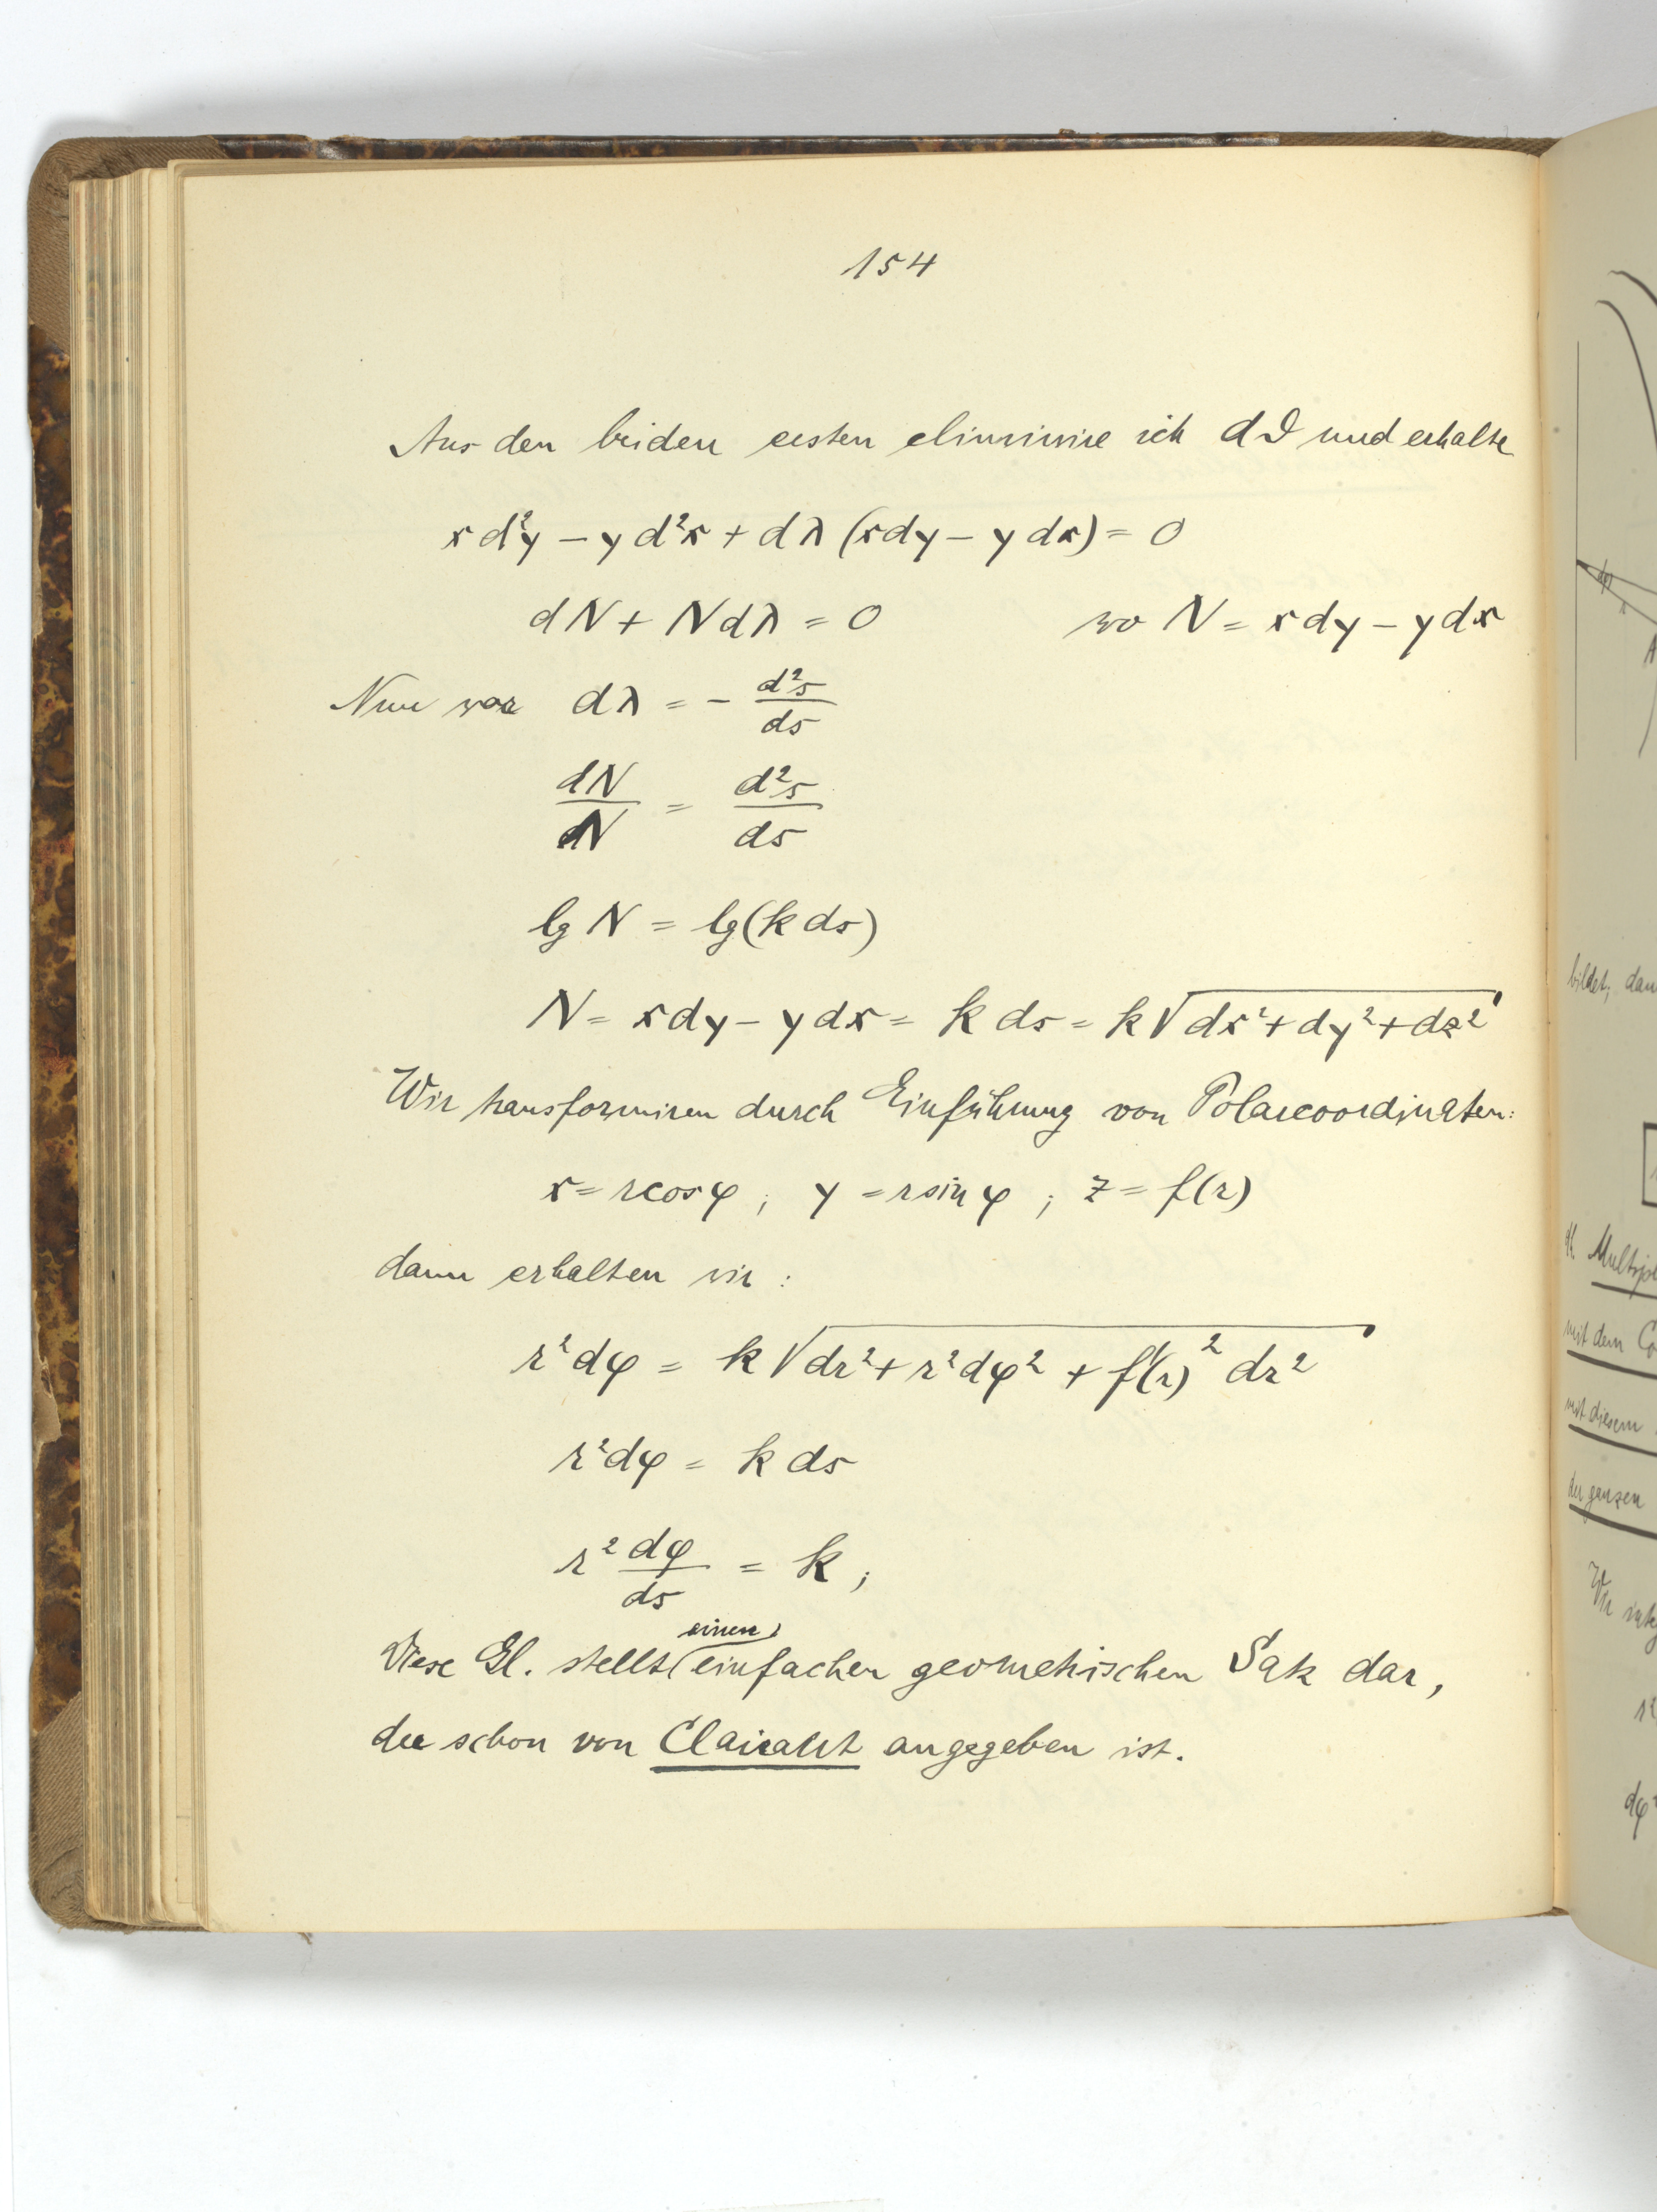 154
Aus den beiden ersten eliminire ich dϑ und erhalte
x d²y – y d²x + dλ (xdy – y dx) = 0
dN + N dλ = 0 wo N = x dy – y dx
Nun war dλ = – d²s/ds
dN/N = d²s/ds
lg N = lg (k ds)
N = x dy – y dx = k ds = k √(dx² + dy² + dz²)
Wir transformiren durch Einführung von Polarcoordinaten:
x = r cos φ ; y = r sin φ ; z = f(r)
dann erhalten wir :
r² dφ = k √(dr² + r² dφ² + f'(r)² dr²)
r² dφ = k ds
r² dφ/ds = k ;
Diese Gl. stellt einen einfachen geometrischen Satz dar,
der schon von Clairaut angegeben ist.
bildet, dan
d. Multipl
mit dem Co
mit diesem
der ganzen
Wir
dφ²